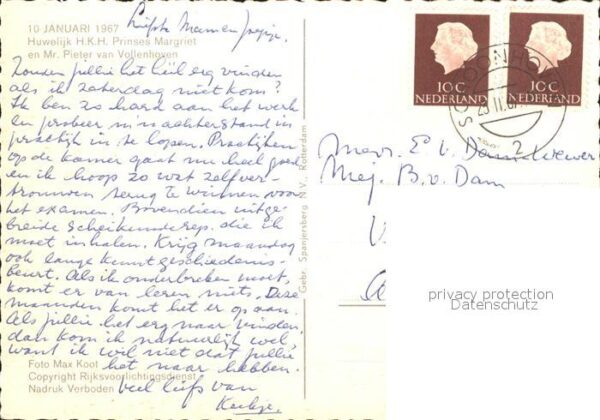 10 JANUARI 1967
Huwelijk H.K.H. Prinses Margriet
en Mr. Pieter van Vollenhoven
Liefste Mam en
Zouden jullie het héél erg vinden
als ik zaterdag niet kom?
Ik ben zo hard aan het werk
en probeer m'n achterstand in
praktijk in te lopen. Practijken
op de kamer gaat nu heel goed
en ik hoop zo wat zelfver-
trouwen terug te winnen voor
het examen. Bovendien uitge-
breide scheikunderep. die ik
moet inhalen. Krijg maandag
ook lange kunstgeschiedenis-
beurt. Als ik onderbreken moet,
komt er van leren niets. Deze
maanden komt het er op aan.
Als jullie het erg naar vinden,
dan kom ik natuurlijk wel,
want ik wil niet dat jullie
het naar hebben.
veel liefs van
Foto Max Koot
Copyright Rijksvoorlichtingsdienst
Nadruk Verboden
Gebr. Spanjersberg N.V., Rotterdam
10 C
NEDERLAND
10 C
NEDERLAND
2
Mevr. E. v. Dam
Mej. B. v. Dam
privacy protection
Datenschutz